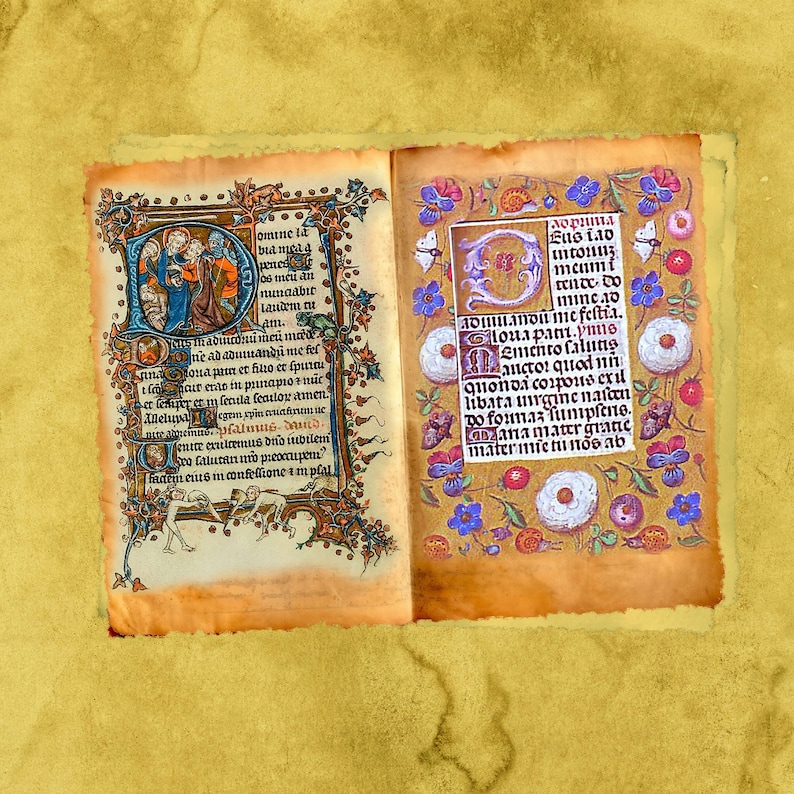 omine la
bia mea a
peries Et
os meum an
nunciabit
laudem tu
am.
Deus in adiutoriū meū intēde
Dñe ad adiuuandū me fes
tina Gloria patri et filio et spiritu
i sco Sicut erat in principio & nūc
et semper et in secula seculor amen
Alleluya Regem xpm crucifixum ue
nite adoremus. psalmus dauid.
Uenite exultemus dnō iubilem
deo salutari nrō preoccupem
faciem eius in confessione & in psal
ad prima
Deus ī ad
iutoriuȝ
meum ī
tende. do
mine ad
adiuuandū me festīa.
Gloria patri. ymis
Memento salutis
auctor quod nrī
quondā corporis ex il
libata uirgine nascen
do formaȝ sumpseris.
Maria mater gratie
mater mīe tu nos ab